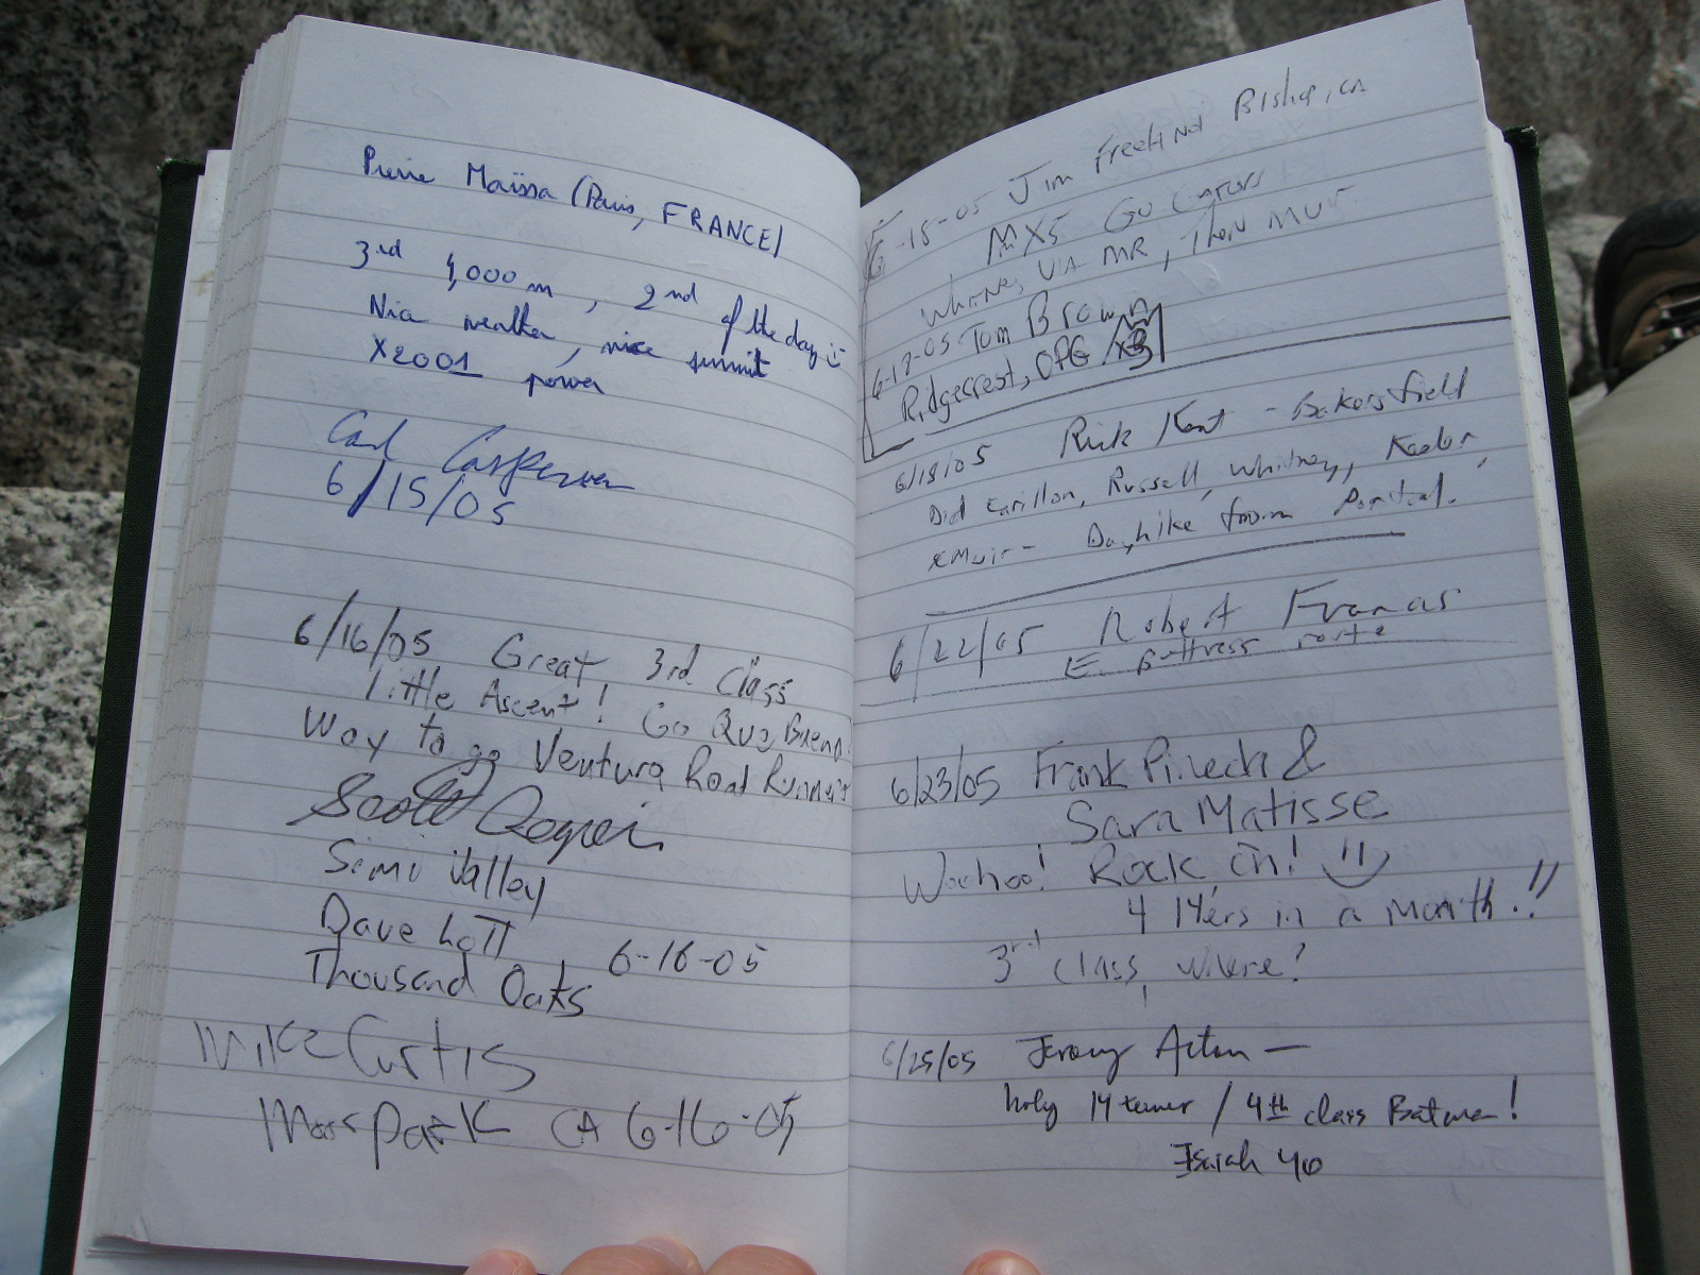 Pierre Maïssa (Paris, FRANCE)
3rd 4,000 m, 2nd of the day :-)
Nice weather, nice summit
X2001 power
Carl
6/15/05
6/16/05 Great 3rd Class
Little Ascent! Go Que Bueno!
Way to go Ventura Road Runners
Scott
Simi Valley
Dave Lott
Thousand Oaks, 6-16-05
Mike Curtis
Moorpark CA 6-16-05
6-18-05 Jim Bishop, CA
MX5
Whitney VIA MR, Then Muir
6-18-05 Tom Brown
Ridgecrest, OPG
6/18/05 Rick Kent - Bakersfield
Did Carillon, Russell, Whitney, Keeler,
& Muir - Dayhike from Portal.
6/22/05 Robert
E Buttress route
6/23/05 Frank &
Sara Matisse
Woohoo! Rock on!
4 14'ers in a month!!
3rd class, where?
6/25/05 Jeremy Acton -
holy 14teener / 4th class Batman!
Isaiah 40